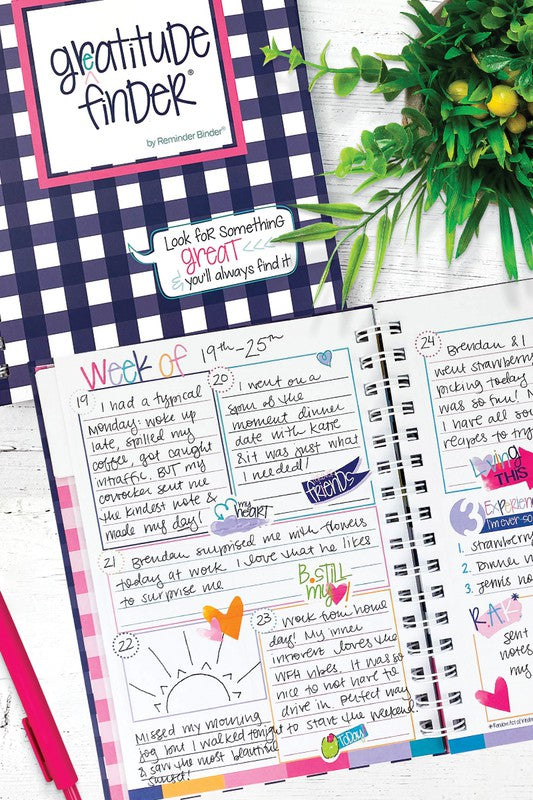 greatitude
finder®
by Reminder Binder®
Look for something
great
& you'll always find it
Week of 19th-25th
19
I had a typical
Monday: woke up
late, spilled my
coffee, got caught
in traffic. BUT my
coworker sent me
the kindest note &
made my day!
my
heart
20
I went on a
spur of the
moment dinner
date with Katie
& it was just what
I needed!
friends
21
Brendan surprised me with flowers
today at work. I love that he likes
to surprise me
B.STILL
my
22
Missed my morning
jog, but I walked tonight
& saw the most beautiful
sunset!
23
Work from home
day! My inner
introvert loves the
WFH vibes. It was so
nice to not have to
drive in. Perfect way
to start the weekend!
TODAY
24
Brendan & I
went strawberry
picking today
was so fun! N
I have all so
recipes to try
THIS
3 EXPERIEN
I'm ever-so
1. strawberry
2.
3. tennis
R.A.K*
sent
notes
my